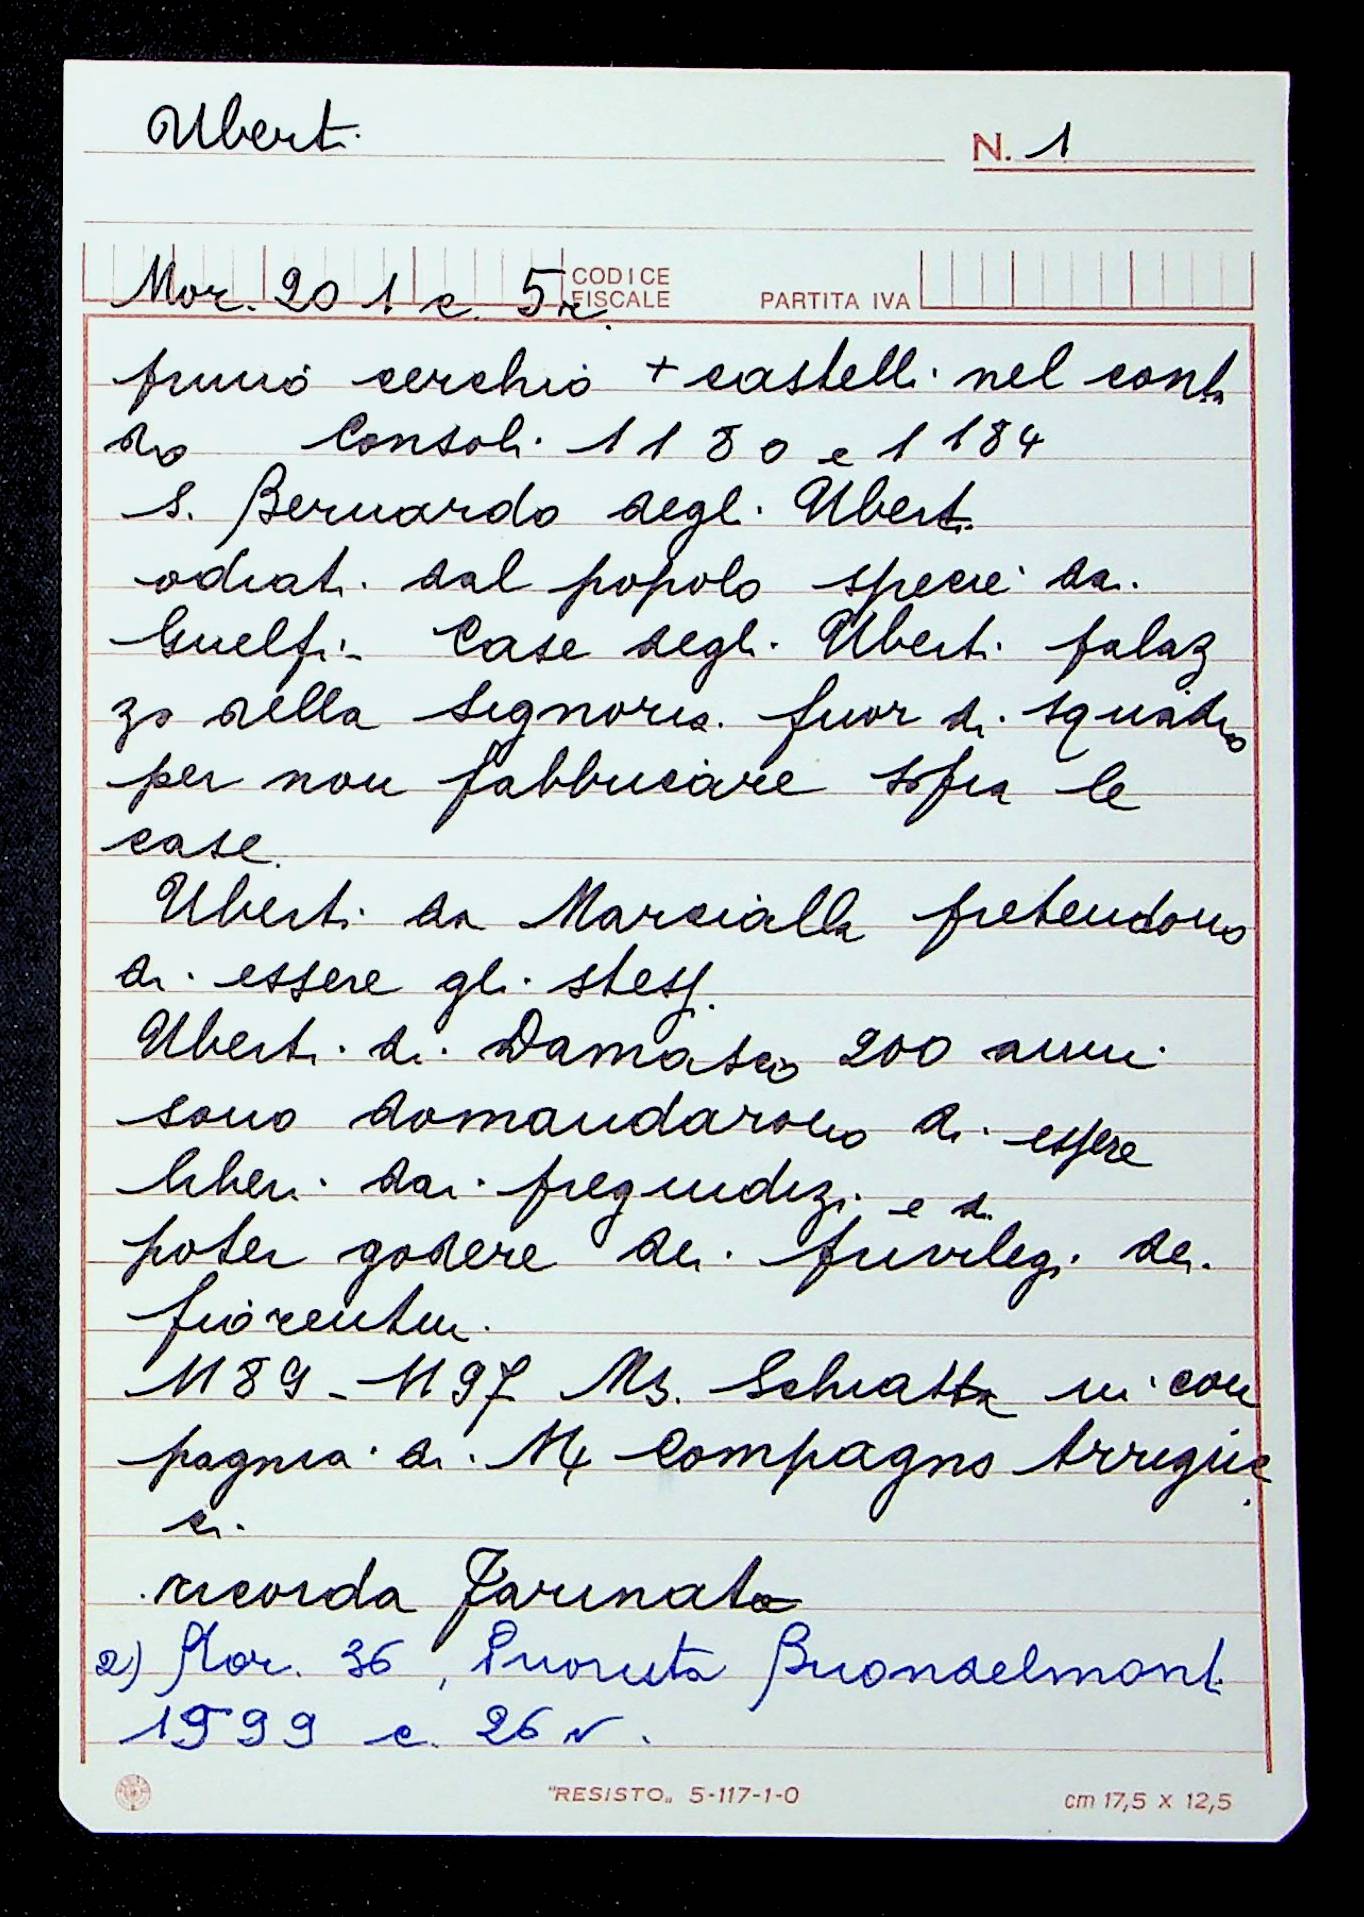 Uberti
N. 1
Mor. 201 c. 5r.
CODICE
FISCALE
PARTITA IVA
primo cerchio + castelli nel conta
do Consoli 1180 e 1184
S. Bernardo degli Uberti
odiati dal popolo specie dai
Guelfi - Case degli Uberti palaz
zo della Signoria fuor di squadro
per non fabbricare sopra le
case.
Uberti da Marcialla pretendono
di essere gli stessi.
Uberti di Damasco 200 anni
sono domandarono di essere
liberi dai pregiudizi e di
poter godere dei privilegi dei
fiorentini.
1189-1197 Ms. Schiatta in com
pagnia di Compagno Arriguc
ci.
ricorda Farinata
2) Mor. 36, Priorista Buondelmonti
1999 c. 26 v.
"RESISTO„ 5-117-1-0
cm 17,5 x 12,5